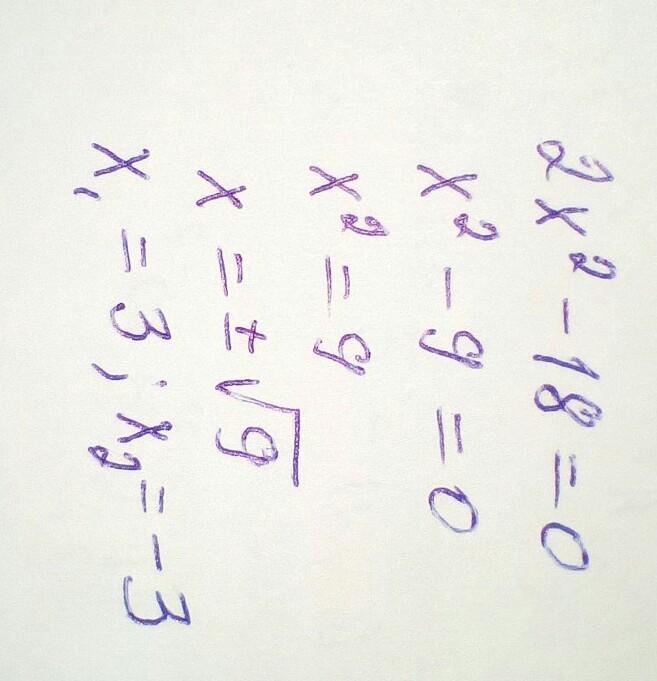 2x² - 18 = 0
x² - 9 = 0
x² = 9
x = ±√9
x₁ = 3; x₂ = -3